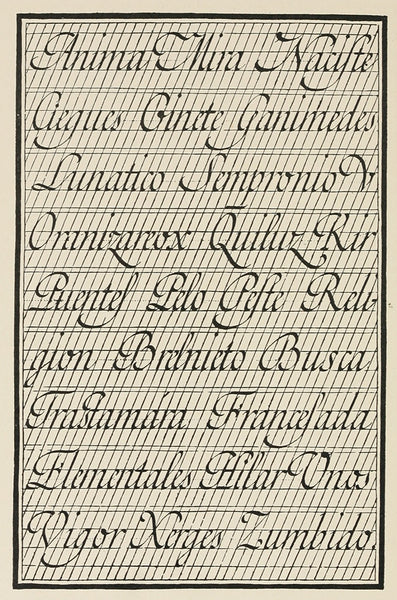 Anima Mira Naciſte
Ciegues Ginete Ganimedes
Lunatico Sempronio V
Oranizareox Quiluz Kir
Puenteſ Pelo Peſte Reli-
gion Brebrieto Busca
Traſtamára Franceſada
Elementales Hilar Unos
Vigor Xerges Zumbido.